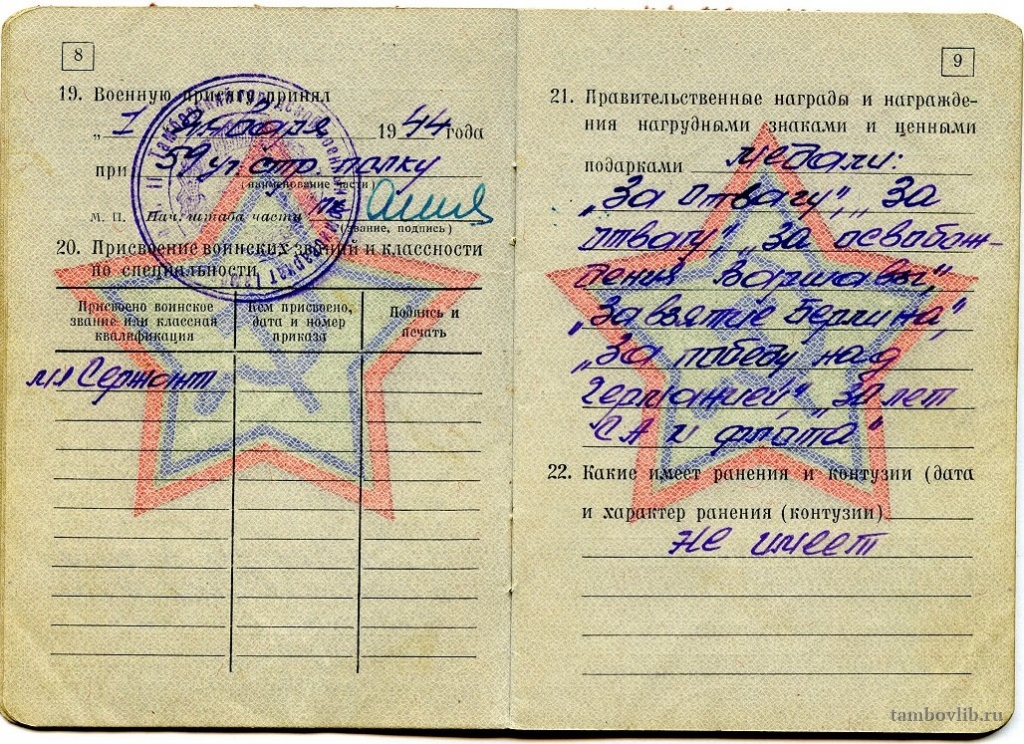 8
19. Военную присягу принял
„ 1 " января 1944 года
при 59 уч. стр. полку
(наименование части)
М. П. Нач. штаба части
(звание, подпись)
20. Присвоение воинских званий и классности
по специальности
Присвоено воинское звание или классная квалификация
Кем присвоено, дата и номер приказа
Подпись и печать
мл Сержант
9
21. Правительственные награды и награжде-
ния нагрудными знаками и ценными
подарками медали:
„За отвагу", „За
отвагу", „За освобож-
дения Варшавы",
„За взятие Берлина"
„За победу над
Германией" „30 лет
СА и флота"
22. Какие имеет ранения и контузии (дата
и характер ранения (контузии)
не имеет
tambovlib.ru